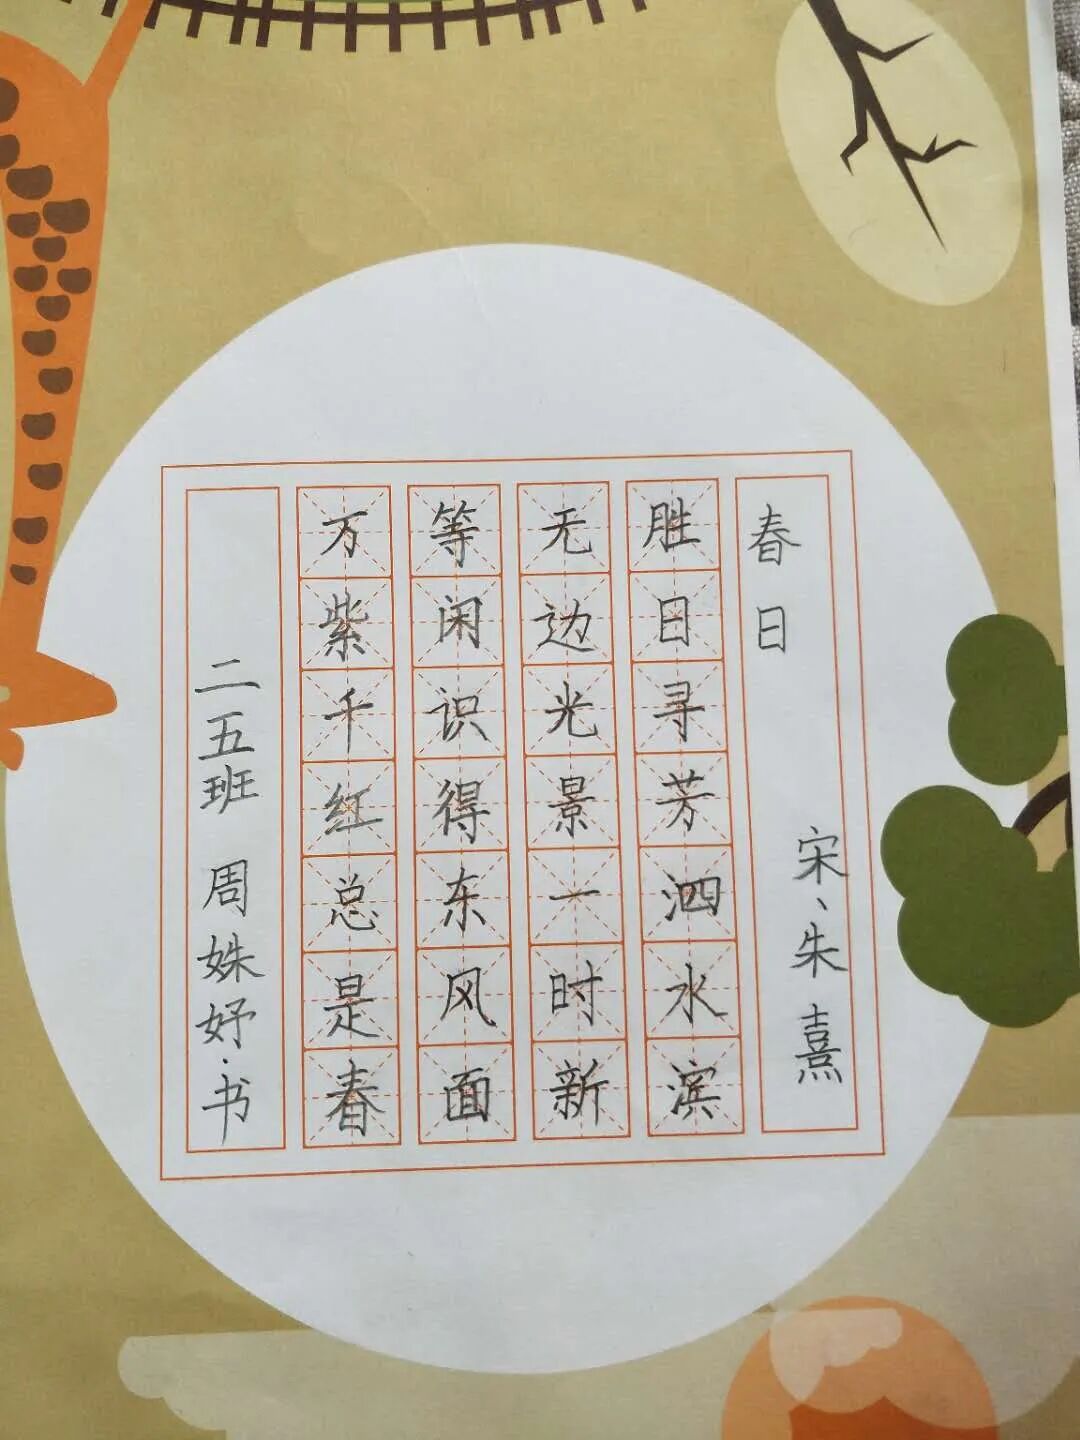 春日
宋、朱熹
胜日寻芳泗水滨
无边光景一时新
等闲识得东风面
万紫千红总是春
二五班 周姝妤·书